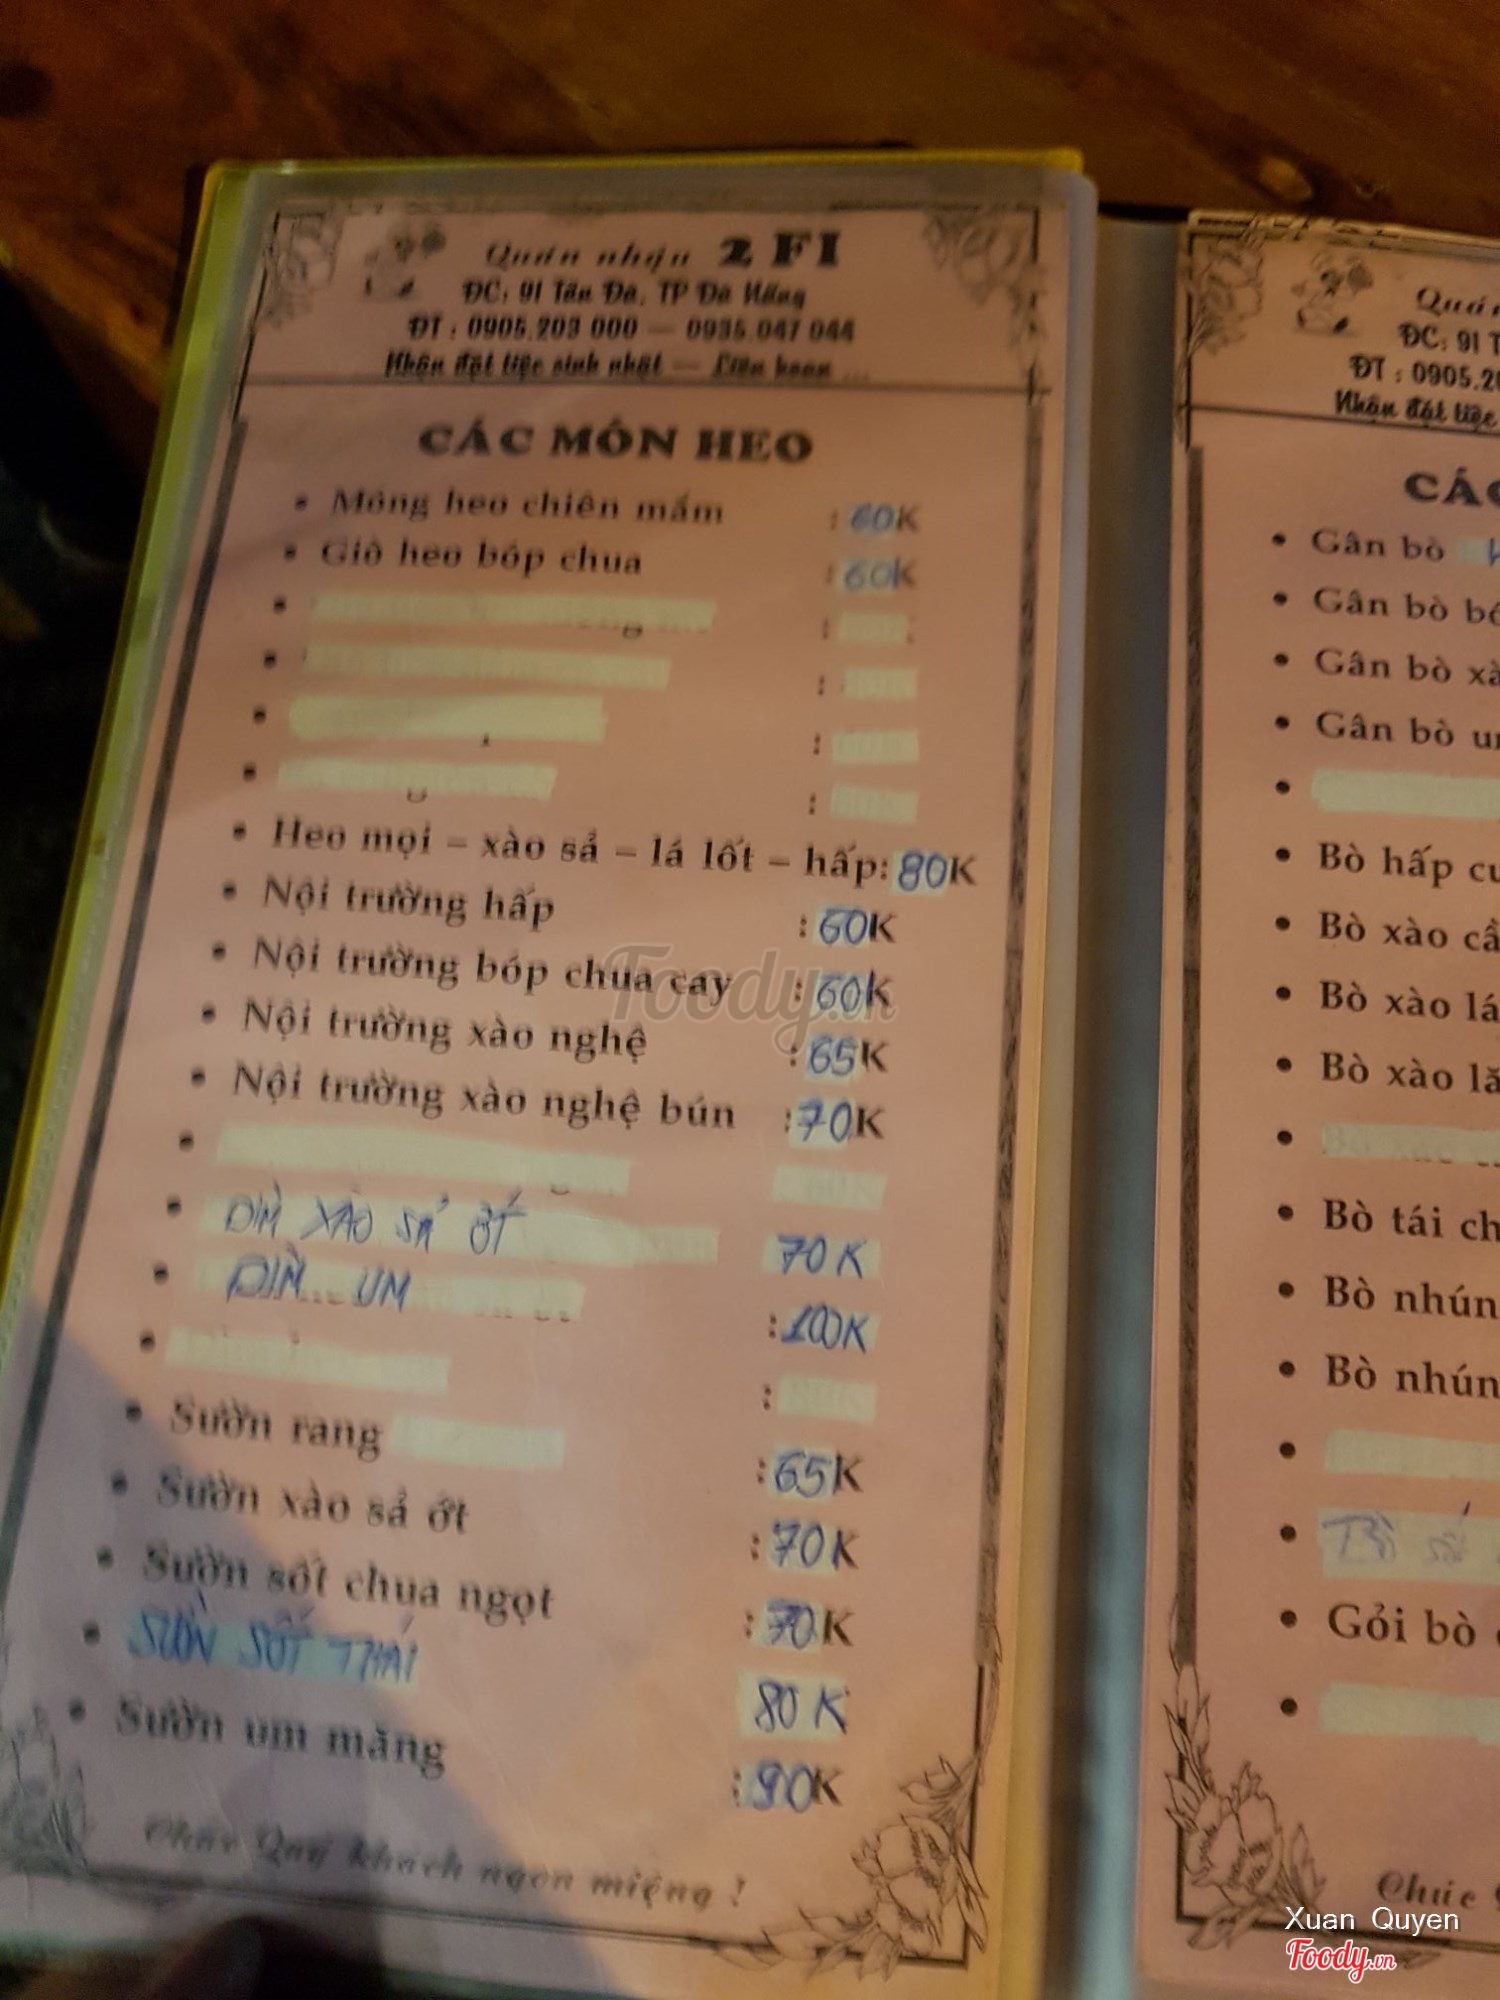 Quán nhậu 2 FI
ĐC: 91 Tản Đà, TP Đà Nẵng
ĐT : 0905.203 000 — 0935.047 044
Nhận đặt tiệc sinh nhật — Liên hoan ...
CÁC MÓN HEO
• Móng heo chiên mắm : 60K
• Giò heo bóp chua : 60K
• Heo mọi – xào sả – lá lốt – hấp: 80K
• Nội trường hấp : 60K
• Nội trường bóp chua cay : 60K
• Nội trường xào nghệ : 65K
• Nội trường xào nghệ bún : 70K
• DIM XÀO SẢ ỚT 70K
• DIM UM : 100K
• Sườn rang : 65K
• Sườn xào sả ớt : 70K
• Sườn sốt chua ngọt : 70K
• SƯỜN SỐT THÁI 80K
• Sườn um măng : 90K
Chúc Quý khách ngon miệng !
Quán
ĐC: 91 T
ĐT : 0905.20
Nhận đặt tiệc
CÁC
• Gân bò
• Gân bò
• Gân bò xà
• Gân bò
• Bò hấp
• Bò xào
• Bò xào lá
• Bò xào lă
• Bò tái ch
• Bò nhún
• Bò nhún
• Gỏi bò
Chúc
Foody.vn
Xuan Quyen
Foody.vn